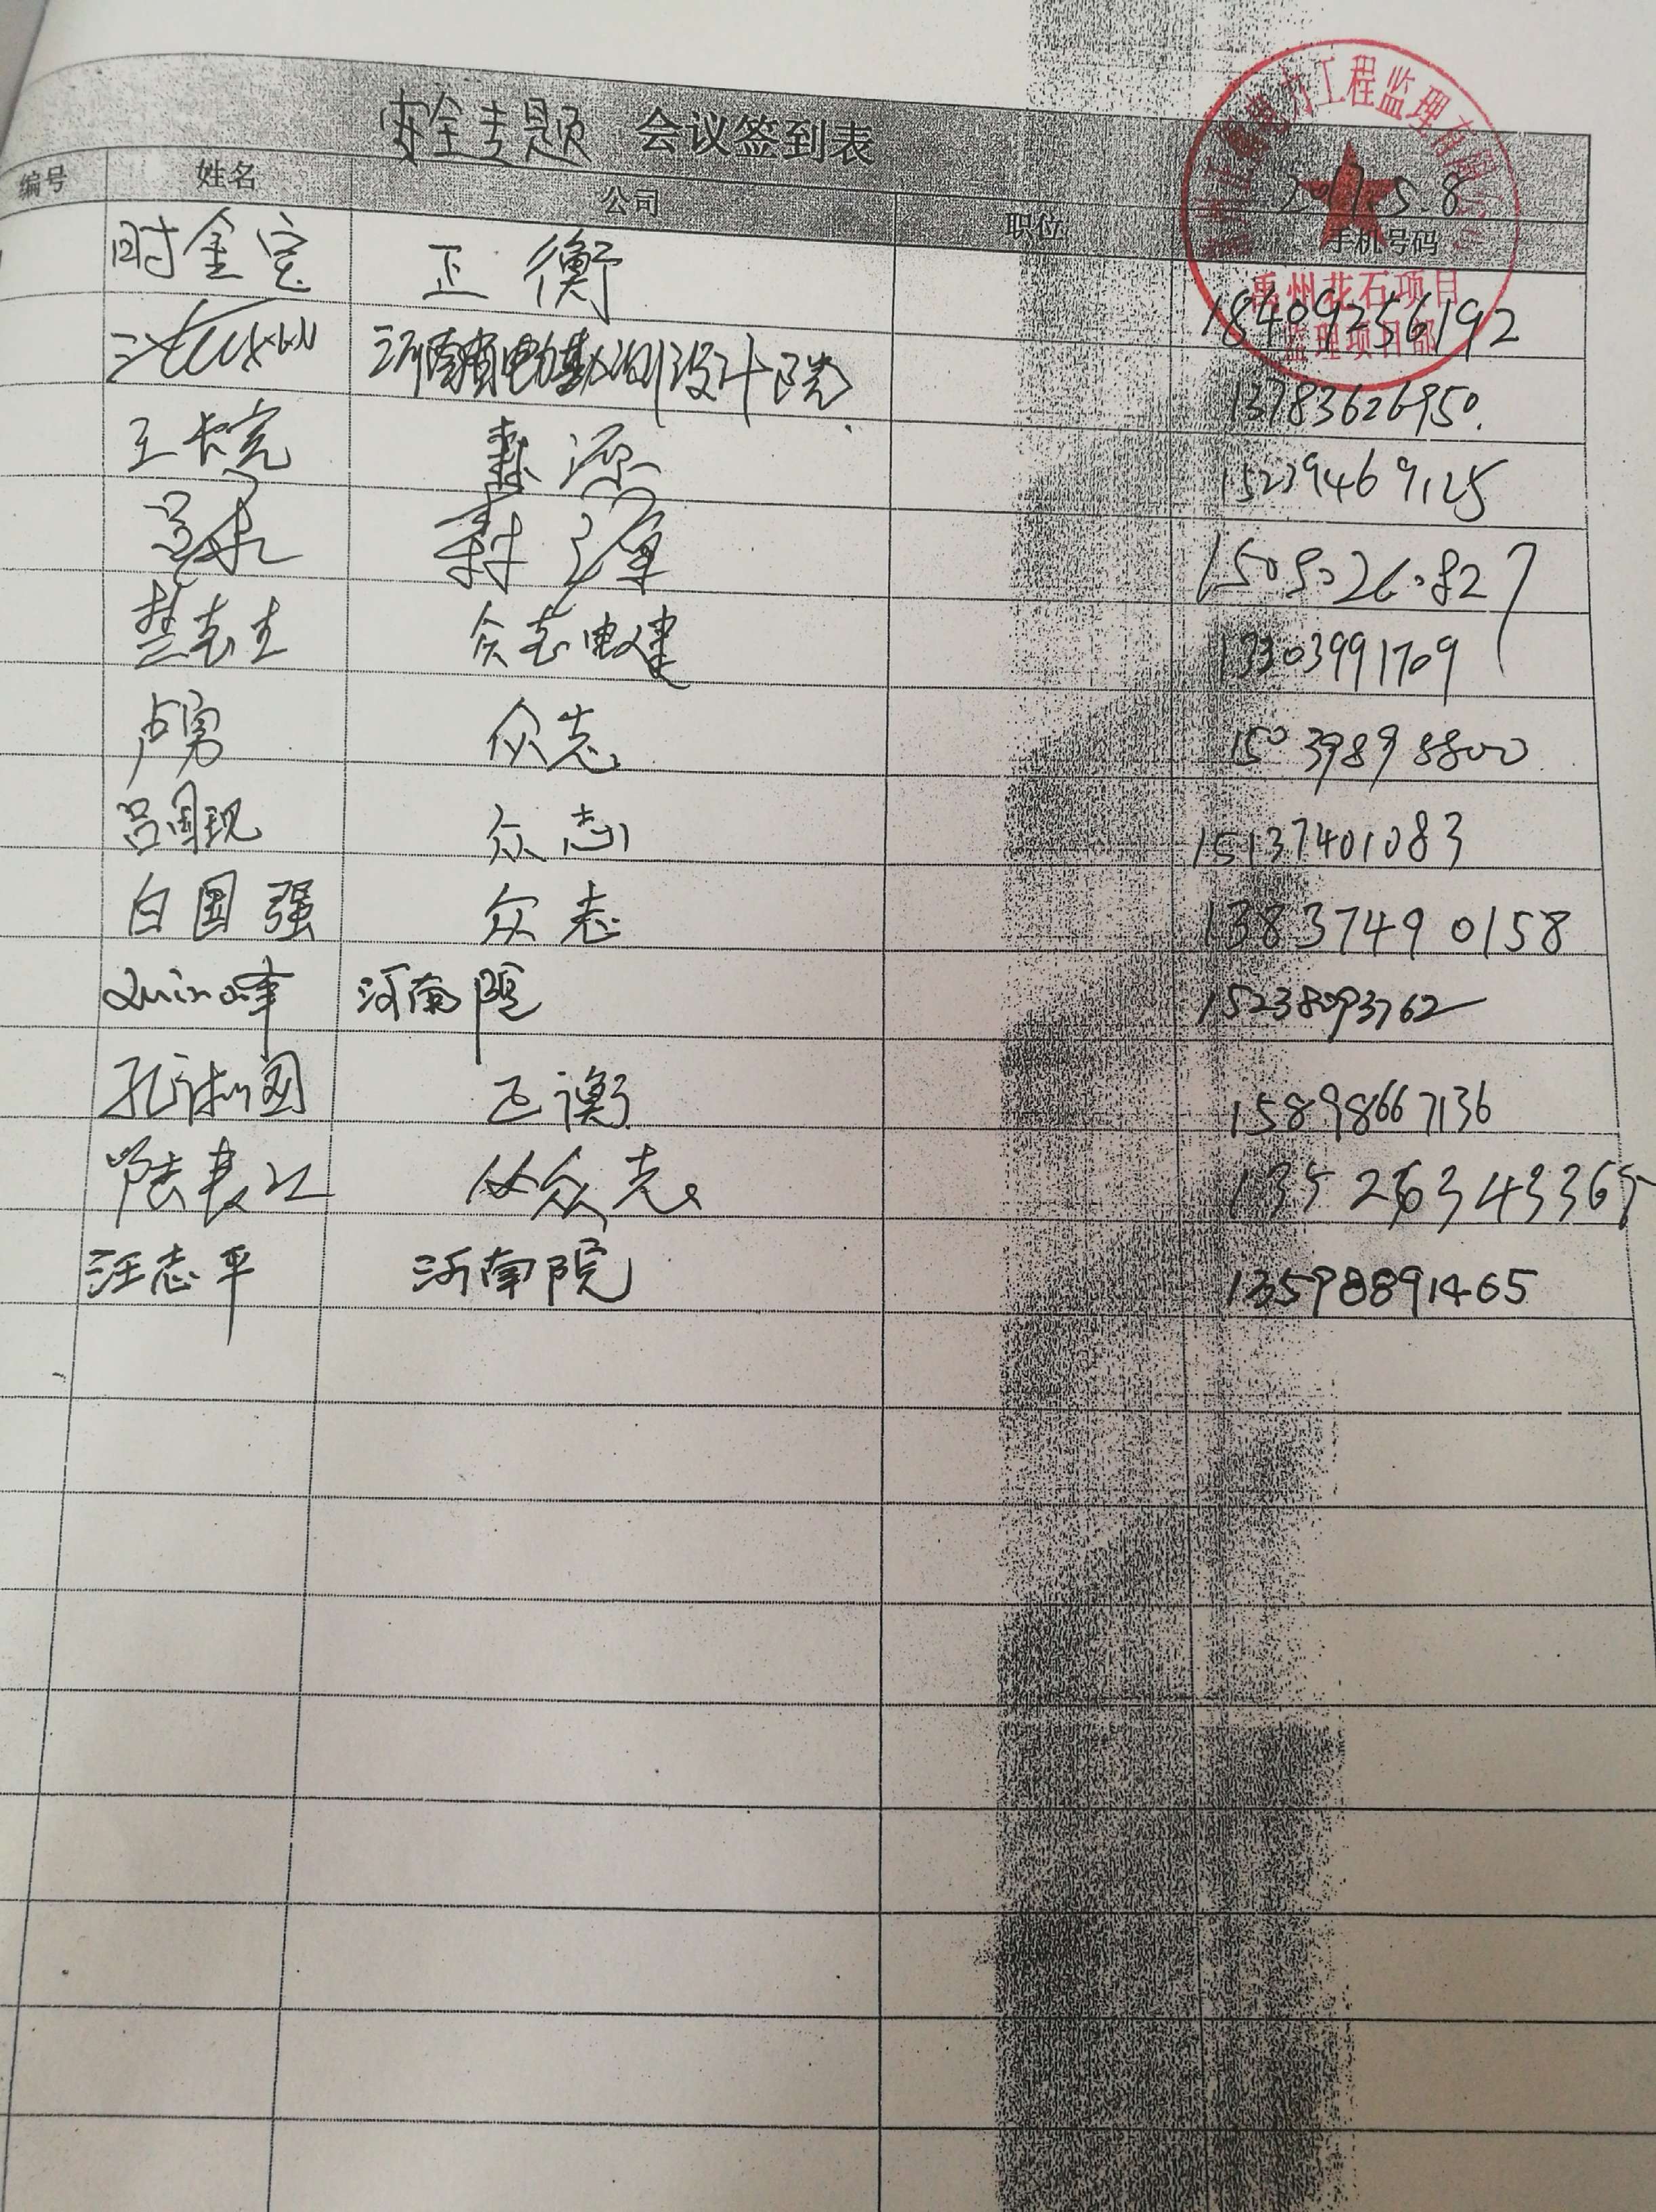 安全专题 会议签到表
2017.5.8
编号 姓名 公司 职位 手机号码
电力工程监理有限公司
禹州花石项目
监理项目部
时金宝 正衡 18409256192
河南省电力勘测设计院 13783626950
王长亮 森源 15239469125
森源
楚志主 众志电建 13303991709
卢勇 众志 15039898800
吕国现 众志 15137401083
白国强 众志 13837490158
河南院 15238093762
正衡 15898667136
众志
汪志平 河南院 13598891465